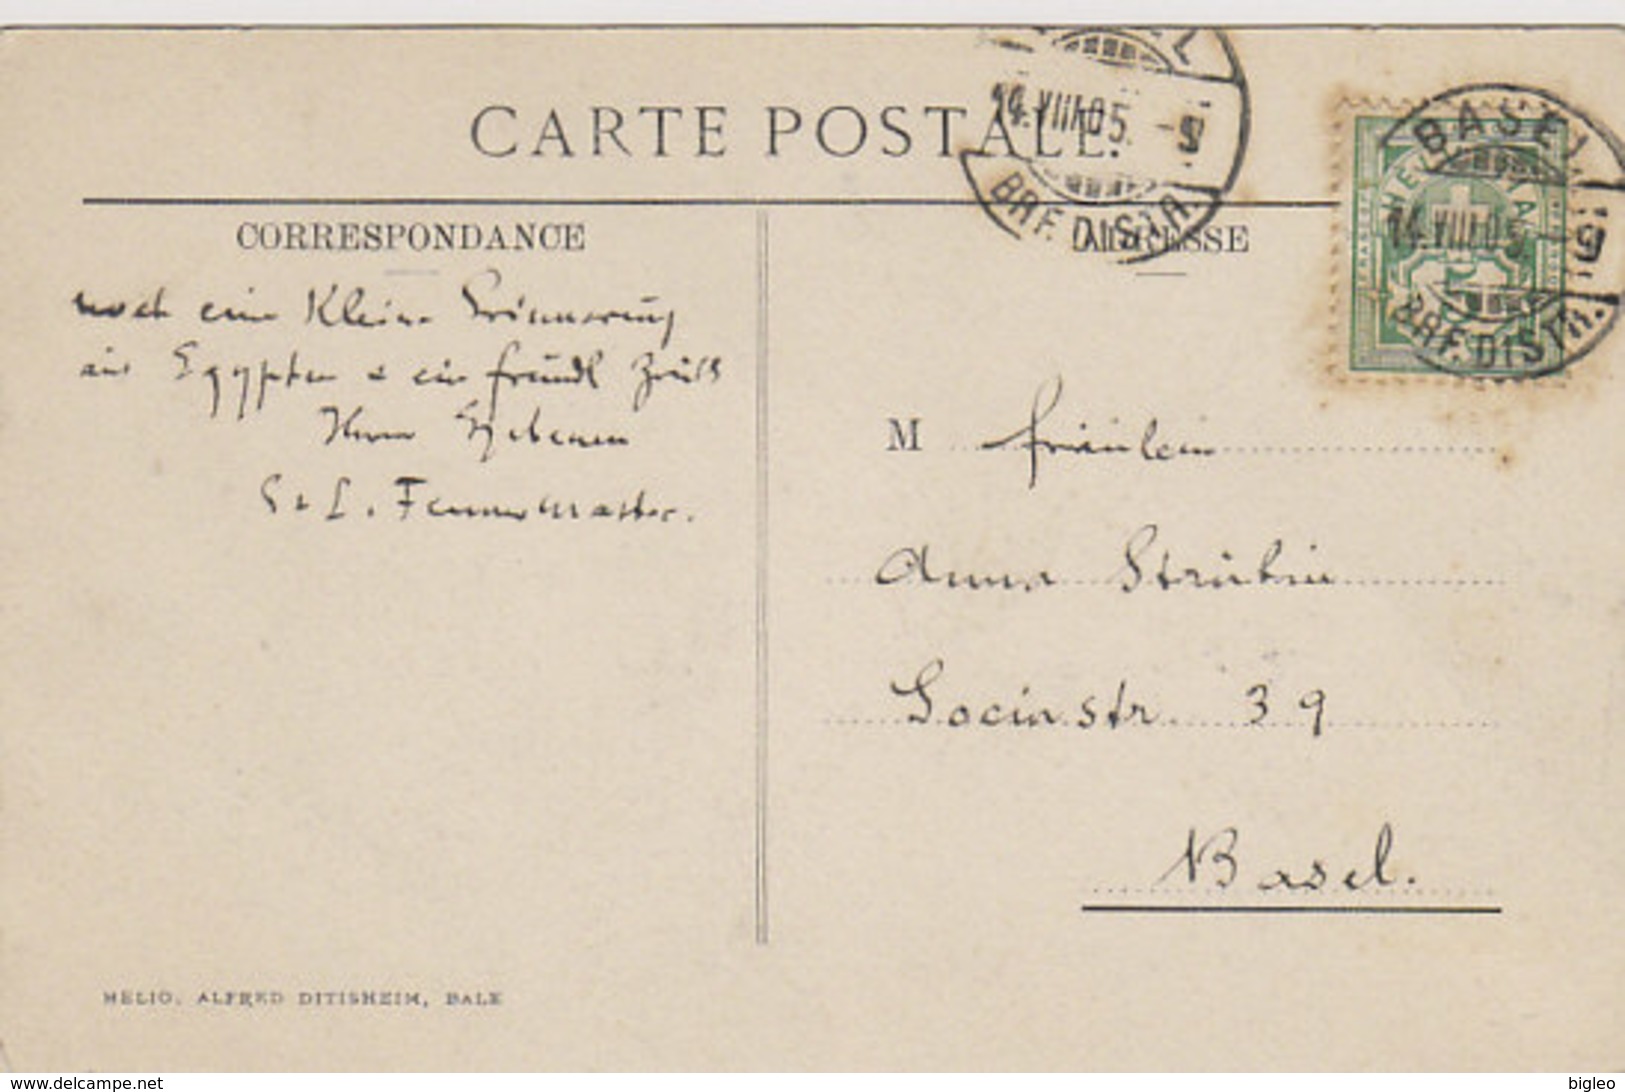 CARTE POSTALE.
BASEL
14.VIII.05.-9
BRF. DISTR.
BASEL
14.VIII.05-9
BRF. DISTR.
HELVETIA
CORRESPONDANCE
ADRESSE
noch eine Kleine Erinnerung
aus Egypten & ein freundl
Ihrer Ergebenen
M Fräulein
Anna Strübin
Socinstr. 39
Basel.
HELIO. ALFRED DITISHEIM, BALE
www.delcampe.net
bigleo